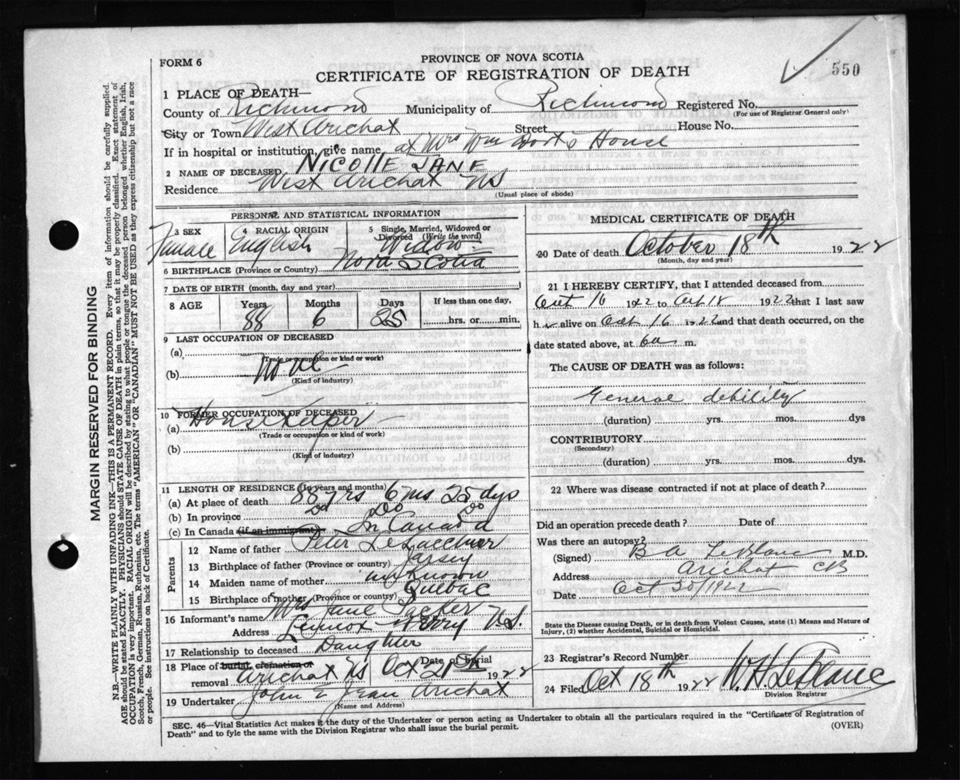 FORM 6
PROVINCE OF NOVA SCOTIA
CERTIFICATE OF REGISTRATION OF DEATH
550
1 PLACE OF DEATH—
County of Richmond Municipality of Richmond Registered No.
(For use of Registrar General only)
City or Town West Arichat Street House No.
If in hospital or institution, give name, at Mrs Wm House
2 NAME OF DECEASED NICOLLE JANE
Residence West Arichat NS
(Usual place of abode)
PERSONAL AND STATISTICAL INFORMATION
3 SEX 4 RACIAL ORIGIN 5 Single, Married, Widowed or Divorced (Write the word)
Female English Widow
6 BIRTHPLACE (Province or Country) Nova Scotia
7 DATE OF BIRTH (month, day and year)
8 AGE Years Months Days If less than one day,
88 6 25 hrs. or min.
9 LAST OCCUPATION OF DECEASED
(a)
(Trade or occupation or kind of work)
(b) None
(Kind of industry)
10 FORMER OCCUPATION OF DECEASED
(a) Housekeeper
(Trade or occupation or kind of work)
(b)
(Kind of industry)
11 LENGTH OF RESIDENCE (In years and months)
(a) At place of death 88 yrs 6 ms 25 dys
(b) In province Do Do Do
(c) In Canada (if an immigrant) In Canada
Parents
12 Name of father Peter
13 Birthplace of father (Province or country) Jersey
14 Maiden name of mother unknown
15 Birthplace of mother (Province or country) Quebec
16 Informant's name Mrs Jane
Address Lennox Ferry N.S.
17 Relationship to deceased Daughter
18 Place of burial, cremation or removal Arichat NS Date of burial Oct 1922
19 Undertaker John Jean Arichat
(Name and Address)
MEDICAL CERTIFICATE OF DEATH
20 Date of death October 18th 1922
(Month, day and year)
21 I HEREBY CERTIFY, that I attended deceased from
Oct 16 1922 to Oct 18 1922 that I last saw
her alive on Oct 16 1922 and that death occurred, on
date stated above, at 6a m.
The CAUSE OF DEATH was as follows:
General debility
(duration) yrs. mos. dys
CONTRIBUTORY
(Secondary)
(duration) yrs. mos. dys.
22 Where was disease contracted if not at place of death?
Did an operation precede death? Date of
Was there an autopsy?
(Signed) B A LeBlanc M.D.
Address Arichat CB
Date Oct 1922
State the Disease causing Death, or in death from Violent Causes, state (1) Means and Nature of Injury, (2) whether Accidental, Suicidal or Homicidal.
23 Registrar's Record Number
24 Filed Oct 18th 1922 W. H. LeBlanc
Division Registrar
SEC. 46—Vital Statistics Act makes it the duty of the Undertaker or person acting as Undertaker to obtain all the particulars required in the "Certificate of Registration of
Death" and to fyle the same with the Division Registrar who shall issue the burial permit.
(OVER)
MARGIN RESERVED FOR BINDING
N.B.—WRITE PLAINLY WITH UNFADING INK—THIS IS A PERMANENT RECORD. Every item of information should be carefully supplied.
AGE should be stated EXACTLY. PHYSICIANS should STATE CAUSE OF DEATH in plain terms, so that it may be properly classified. Exact statement of
OCCUPATION is very important. RACIAL ORIGIN will be described by stating to what people or tongue the deceased person belonged whether English, Irish,
Scotch, French, German, Russian, Ruthenian, etc. The terms "AMERICAN" OR "CANADIAN" MUST NOT BE USED as they express citizenship but not a race
or people. See instructions on back of Certificate.